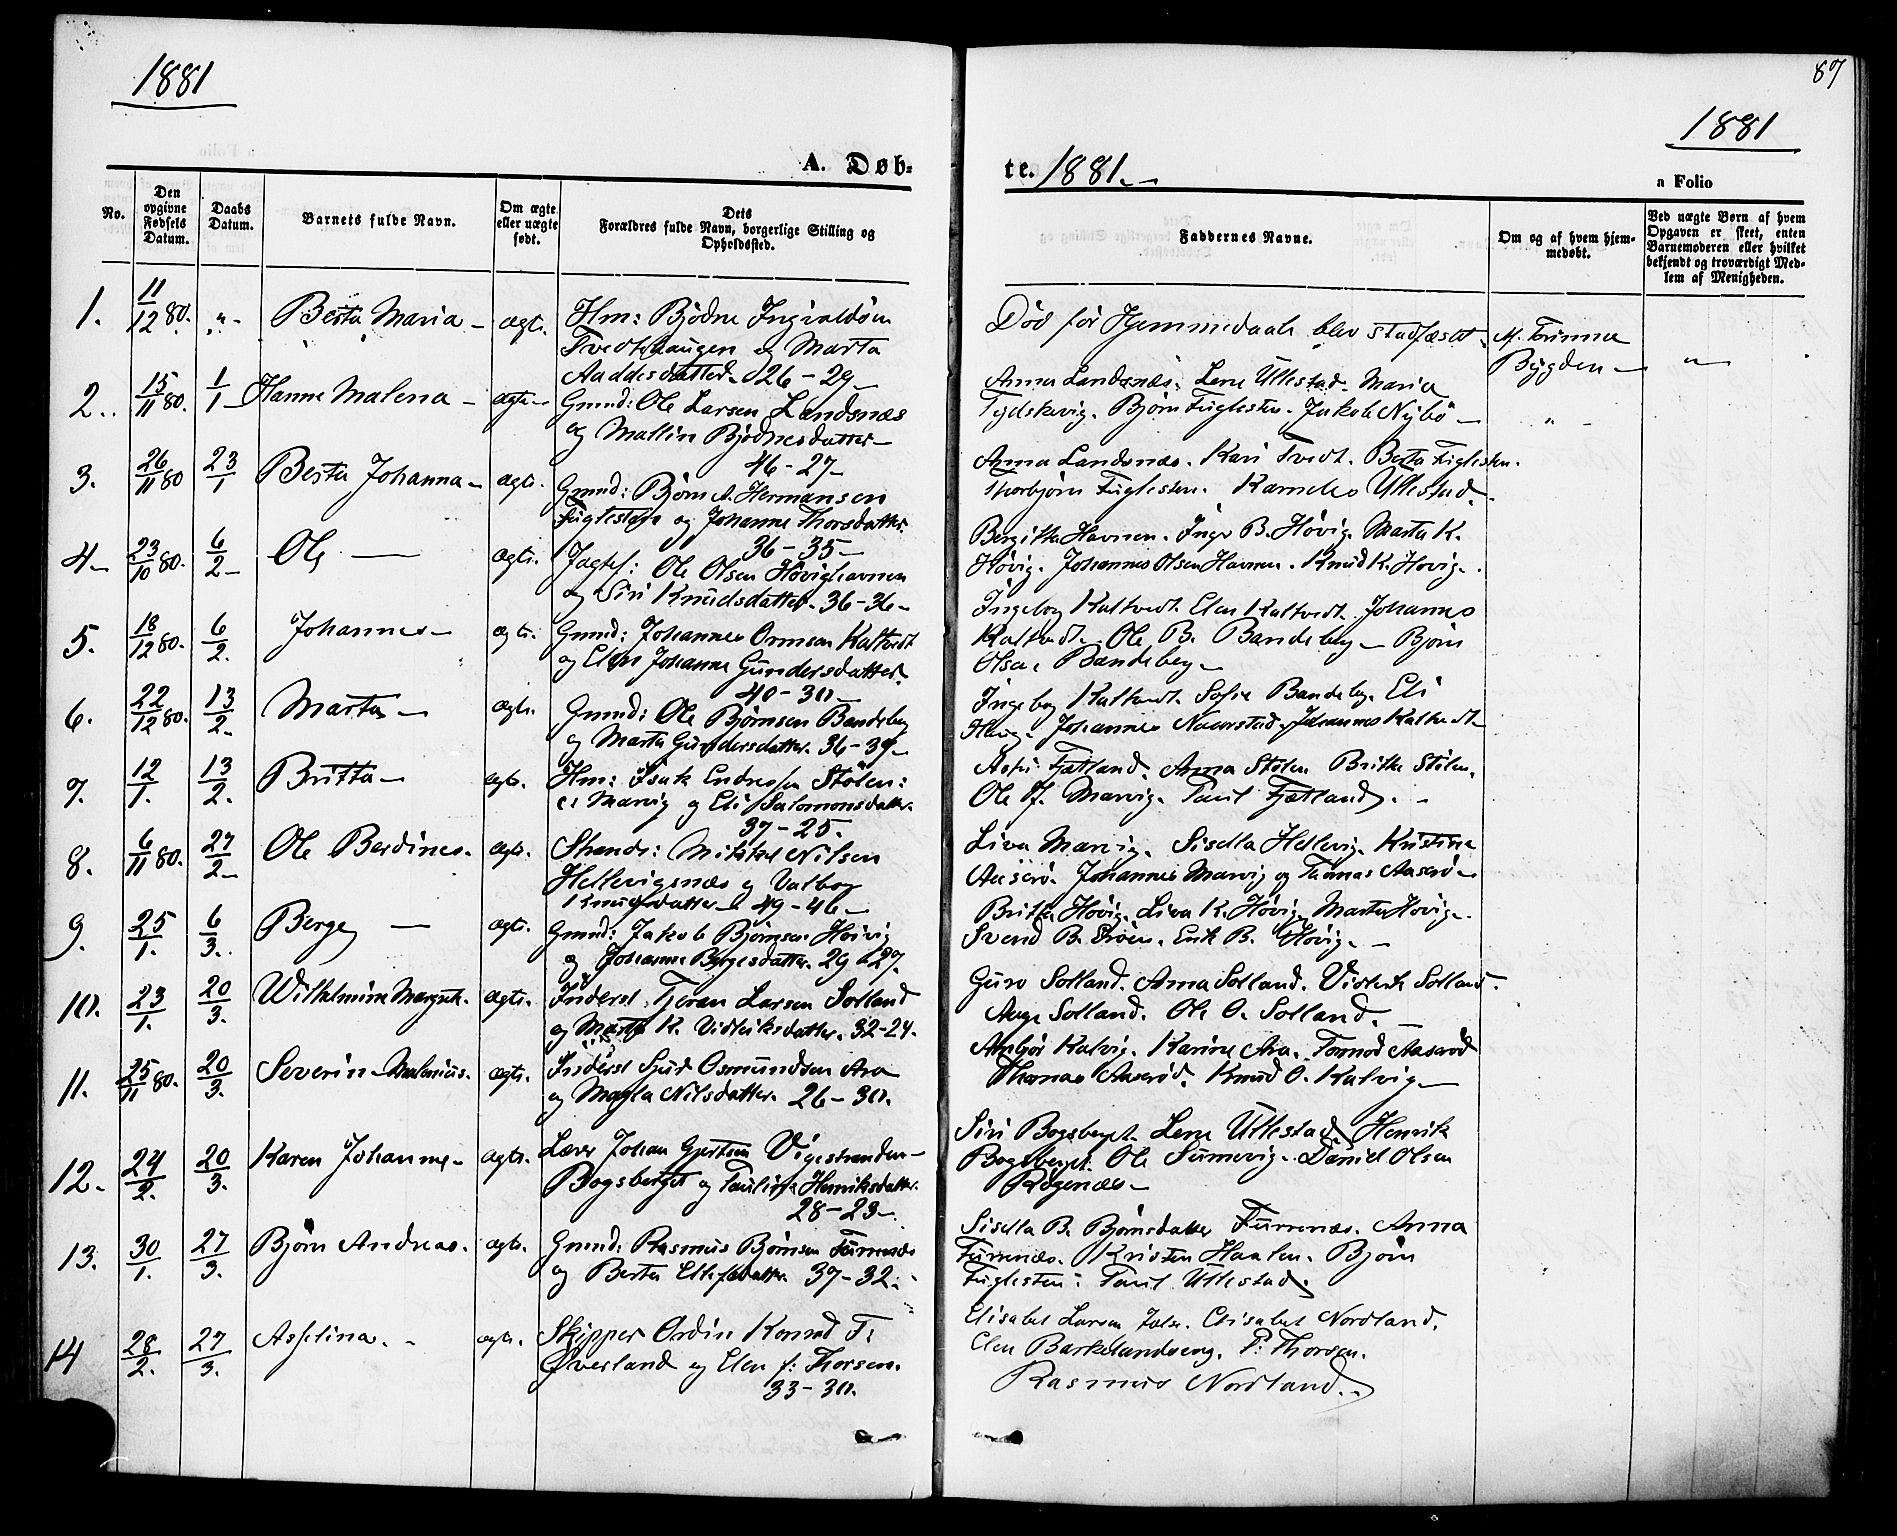 1881
87
1881
A. Døb-
te. 1881.
a Folio
No.
Den opgivne Fødsels Datum.
Daabs Datum.
Barnets fulde Navn.
Om ægte eller uægte født.
Dets Forældres fulde Navn, borgerlige Stilling og Opholdssted.
Faddernes Navne.
Om og af hvem hjem-
medøbt.
Ved uægte Børn af hvem Opgaven er skeet, enten Barnemoderen eller hvilket bekjendt og troværdigt Med-
lem af Menigheden.
1. 11/12 80. „ - Berta Maria - ægte. Hm: Bjødne
Tvedthaugen og Marta
Aaddesdatter. 26-29-
Død før Hjemmedaab blev stadfæstet.
Bygden -
2. 15/11 80. 1/1 - Hanne Malena - ægte - Gmnd: Ole Larsen Landsnæs
og Mallin Bjødnesdatter -
46-27-
Anna Landsnæs. Lene Ullestad. Maria
Bjørn Fuglesten. Jakob Nybø -
3. 26/11 80 23/1 Berta Johanna - ægte. Gmnd: Bjørn A. Hermansen
Fuglesten og Johanne Thorsdatter.
36-35-
Anna Landsnæs. Kari Tvedt. Berta Fuglesten.
Thorbjørn Fuglesten. Ullestad.
4 - 23/10 80. 6/2 - Ole - ægte. Ole Olsen Høvighavnen
og Siri Knudsdatter. 36-36-
Bergitha Havnen. Inger B. Høvig. Marta K.
Høvig. Johannes Olsen Havnen. Knud K. Høvig.
5. 18/12 80. 6/2. Johannes - ægte. Gmnd: Johannes Ormsen Kaltvedt
og Elen Johanna Gundersdatter.
40-30-
Ingeborg Kaltvedt. Elen Kaltvedt. Johannes
Kaltvedt. Ole B. Bandeberg - Bjørn
Olsen Bandeberg -
6. 22/12 80. 13/2. Marta - ægte. Gmnd: Ole Bjørnsen Bandeberg
og Marta Gundersdatter. 36-39-
Ingeborg Kaltvedt. Sofie Bandeberg. Eli
Johannes Johannes Kaltvedt -
7. 12/1. 13/2. Britta - ægte. Hm: Isak Endressen Stølen:
Marvig og Eli Salomonsdatter.
37-25.
Fjetland. Anna Stølen Britha Stølen.
Ole J. Marvig. Paul Fjetland. -
8. 6/11 80. 27/2 - Ole Berdines. ægte. Strands: Mikkel Nilsen
Hellevigsnæs og Valborg
Knudsdatter - 49-46-
Liva Marvig. Sisella Hellevig. Kristine
Aaserø. Johannes Marvig og Thomas Aaserø -
9. 25/1. 6/3. Berge - ægte. Gmnd: Jakob Bjørnsen Høivig
og Johanne Bergesdatter. 29-27.
Britha Høvig. Liva K. Høvig. Marta Høvig.
Svend B. Erik B. Høvig. -
10. 23/1. 20/3. Wilhelmine Margreth. ægte. Inderst Tjeran Larsen Solland
og Marta K. Vidriksdatter. 32-24.
Guro Solland. Anna Solland. Vidrik Solland.
Aage Solland. Ole O. Solland.
11. 25/11 80. 20/3. Severin Malenius. ægte. Inderst Sjur Osmundsen Ara
og Magla Nilsdatter. 26-30.
Kalvig. Karine Ara. Tormod Aaserød
Thomas Aaserød. Knud O. Kalvig -
12. 24/2. 20/3. Karen Johanne - ægte. Lærer Johan Gjertsen Vigestranden -
Bogsberget og Pauline Henriksdatter.
28-23-
Siri Bogsberget. Lene Ullestad Henrik
Bogsberget. Ole Daniel Olsen
13. 30/1. 27/3. Bjørn Andreas. ægte. Gmnd: Rasmus Bjørnsen Furrenæs
og Berta Ellefsdatter 37-32.
Sisella B. Bjørnsdatter Furrenæs. Anna
Furrenæs. Kristen Haalen. Bjørn
Fuglesten. Paul Ullestad.
14 28/2. 27/3. Asselina. - ægte. Skipper Ordin Konrad T.
Øverland og Elen f: Thorsen.
33-30.
Elisabet Larsen Elisabet Nordland.
Elen P: Thorsen.
Rasmus Nordland.